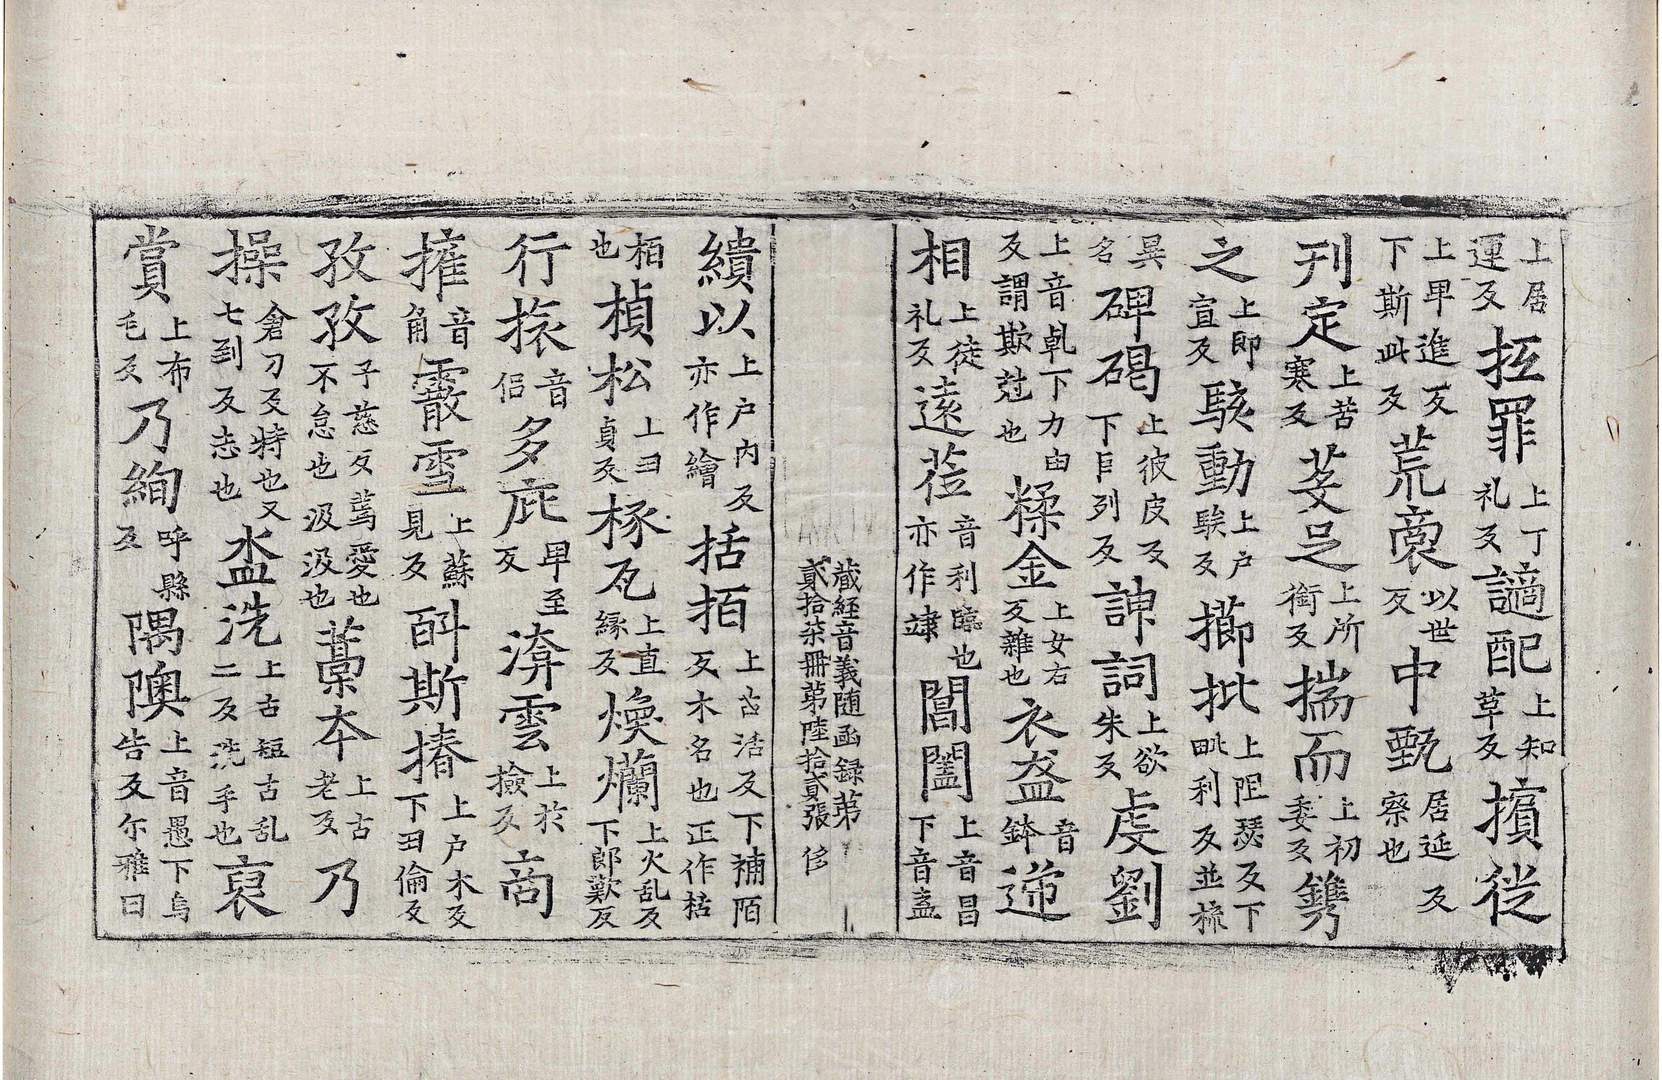 上居運反抂罪上丁礼反讁配上知草反擯従
上卑進反下斯此反荒裔以世反中甄居延反察也
刊定上苦寒反芟足上所銜反揣而上初委反鐫
之上即宣反駭動上户騃反擳批上阻瑟反下毗利反並梳
名碑碣上彼皮反下巨列反諌詞上欲朱反虔劉
上音乹下力由反謂欺尅也糅金上女右反雜也衣盋音鉢递
相上徒礼反遠莅音利臨也亦作竦閶闔上音昌下音盍
藏經音義随函録第貳拾柒冊第陸拾貳張 侈
繢以上户内反亦作繪括栢上古活反下補陌反木名也正作栝
栢也楨松上曰貞反椽瓦上直縁反煥爛上火乱反下郎歎反
行㨾音侣多庇卑至反渰雲上於撿反啇
搉音角霰雪上蘇見反䣼斯摏上户木反下田倫反
孜孜子慈反不怠也汲汲也篤愛也藁本上古老反乃
操倉刀反持也又七到反志也盥洗上古短古乱二反洗手也裒
賞上布毛反乃絢呼縣反隅隩上音愚下烏告反尔雅曰